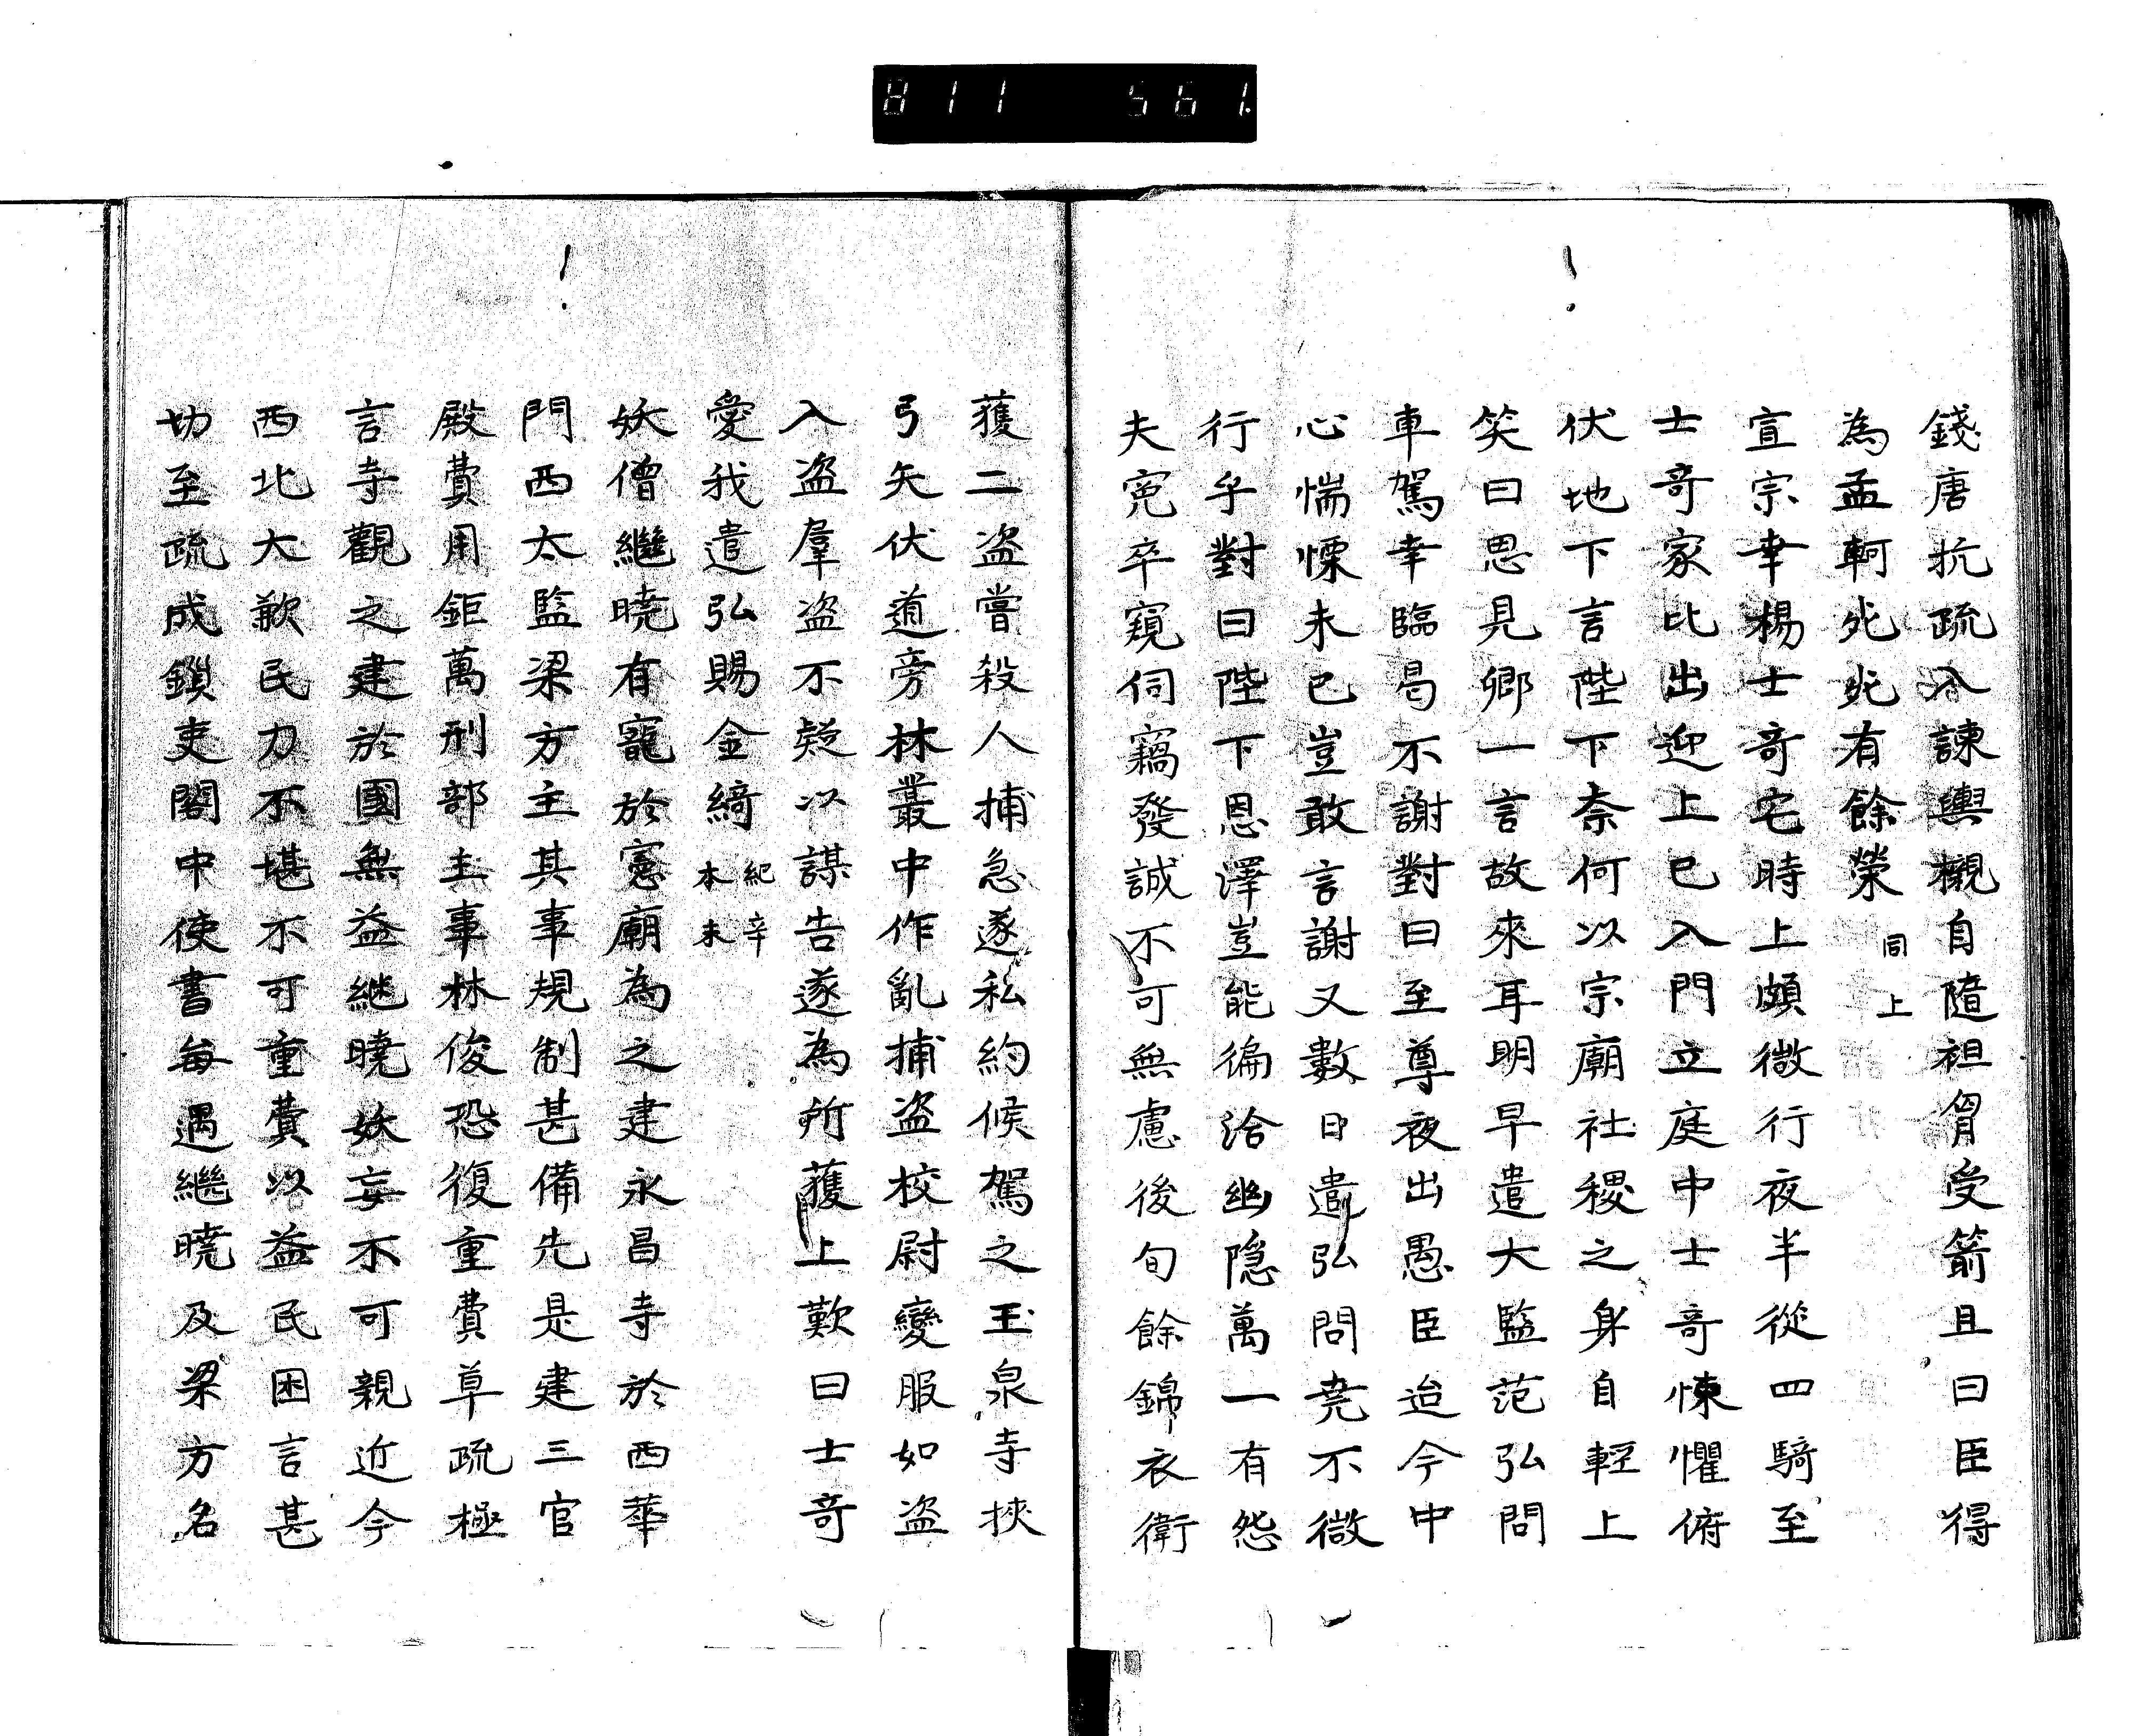 811 561.
錢唐抗疏入諫輿櫬自隨袒胷受箭且曰臣得
為孟軻死死有餘榮 同上
宣宗幸楊士奇宅時上頗微行夜半從四騎至
士奇家比出迎上已入門立庭中士奇悚懼俯
伏地下言陛下奈何以宗廟社稷之身自輕上
笑曰思見卿一言故來耳明早遣大監范弘問
車駕幸臨曷不謝對曰至尊夜出愚臣迨今中
心惴慄未已豈敢言謝又數日遣弘問堯不微
行乎對曰陛下恩澤豈能徧洽幽隐萬一有怨
夫寃卒窺伺竊發誠不可無慮後旬餘錦衣衛
獲二盗嘗殺人捕急遂私約候駕之玉泉寺挾
弓矢伏道旁林叢中作亂捕盗校尉變服如盗
入盗羣盗不疑以謀告遂為所獲上歎曰士奇
愛我遣弘賜金綺 紀辛本末
妖僧繼曉有寵於憲廟為之建永昌寺於西華
門西太監梁方主其事規制甚備先是建三官
殿費用鉅萬刑部主事林俊恐復重費草疏極
言寺觀之建於國無益継曉妖妄不可親近今
西北大歉民力不堪不可重費以益民困言甚
切至疏成鎖吏閣中使書每遇繼曉及梁方名